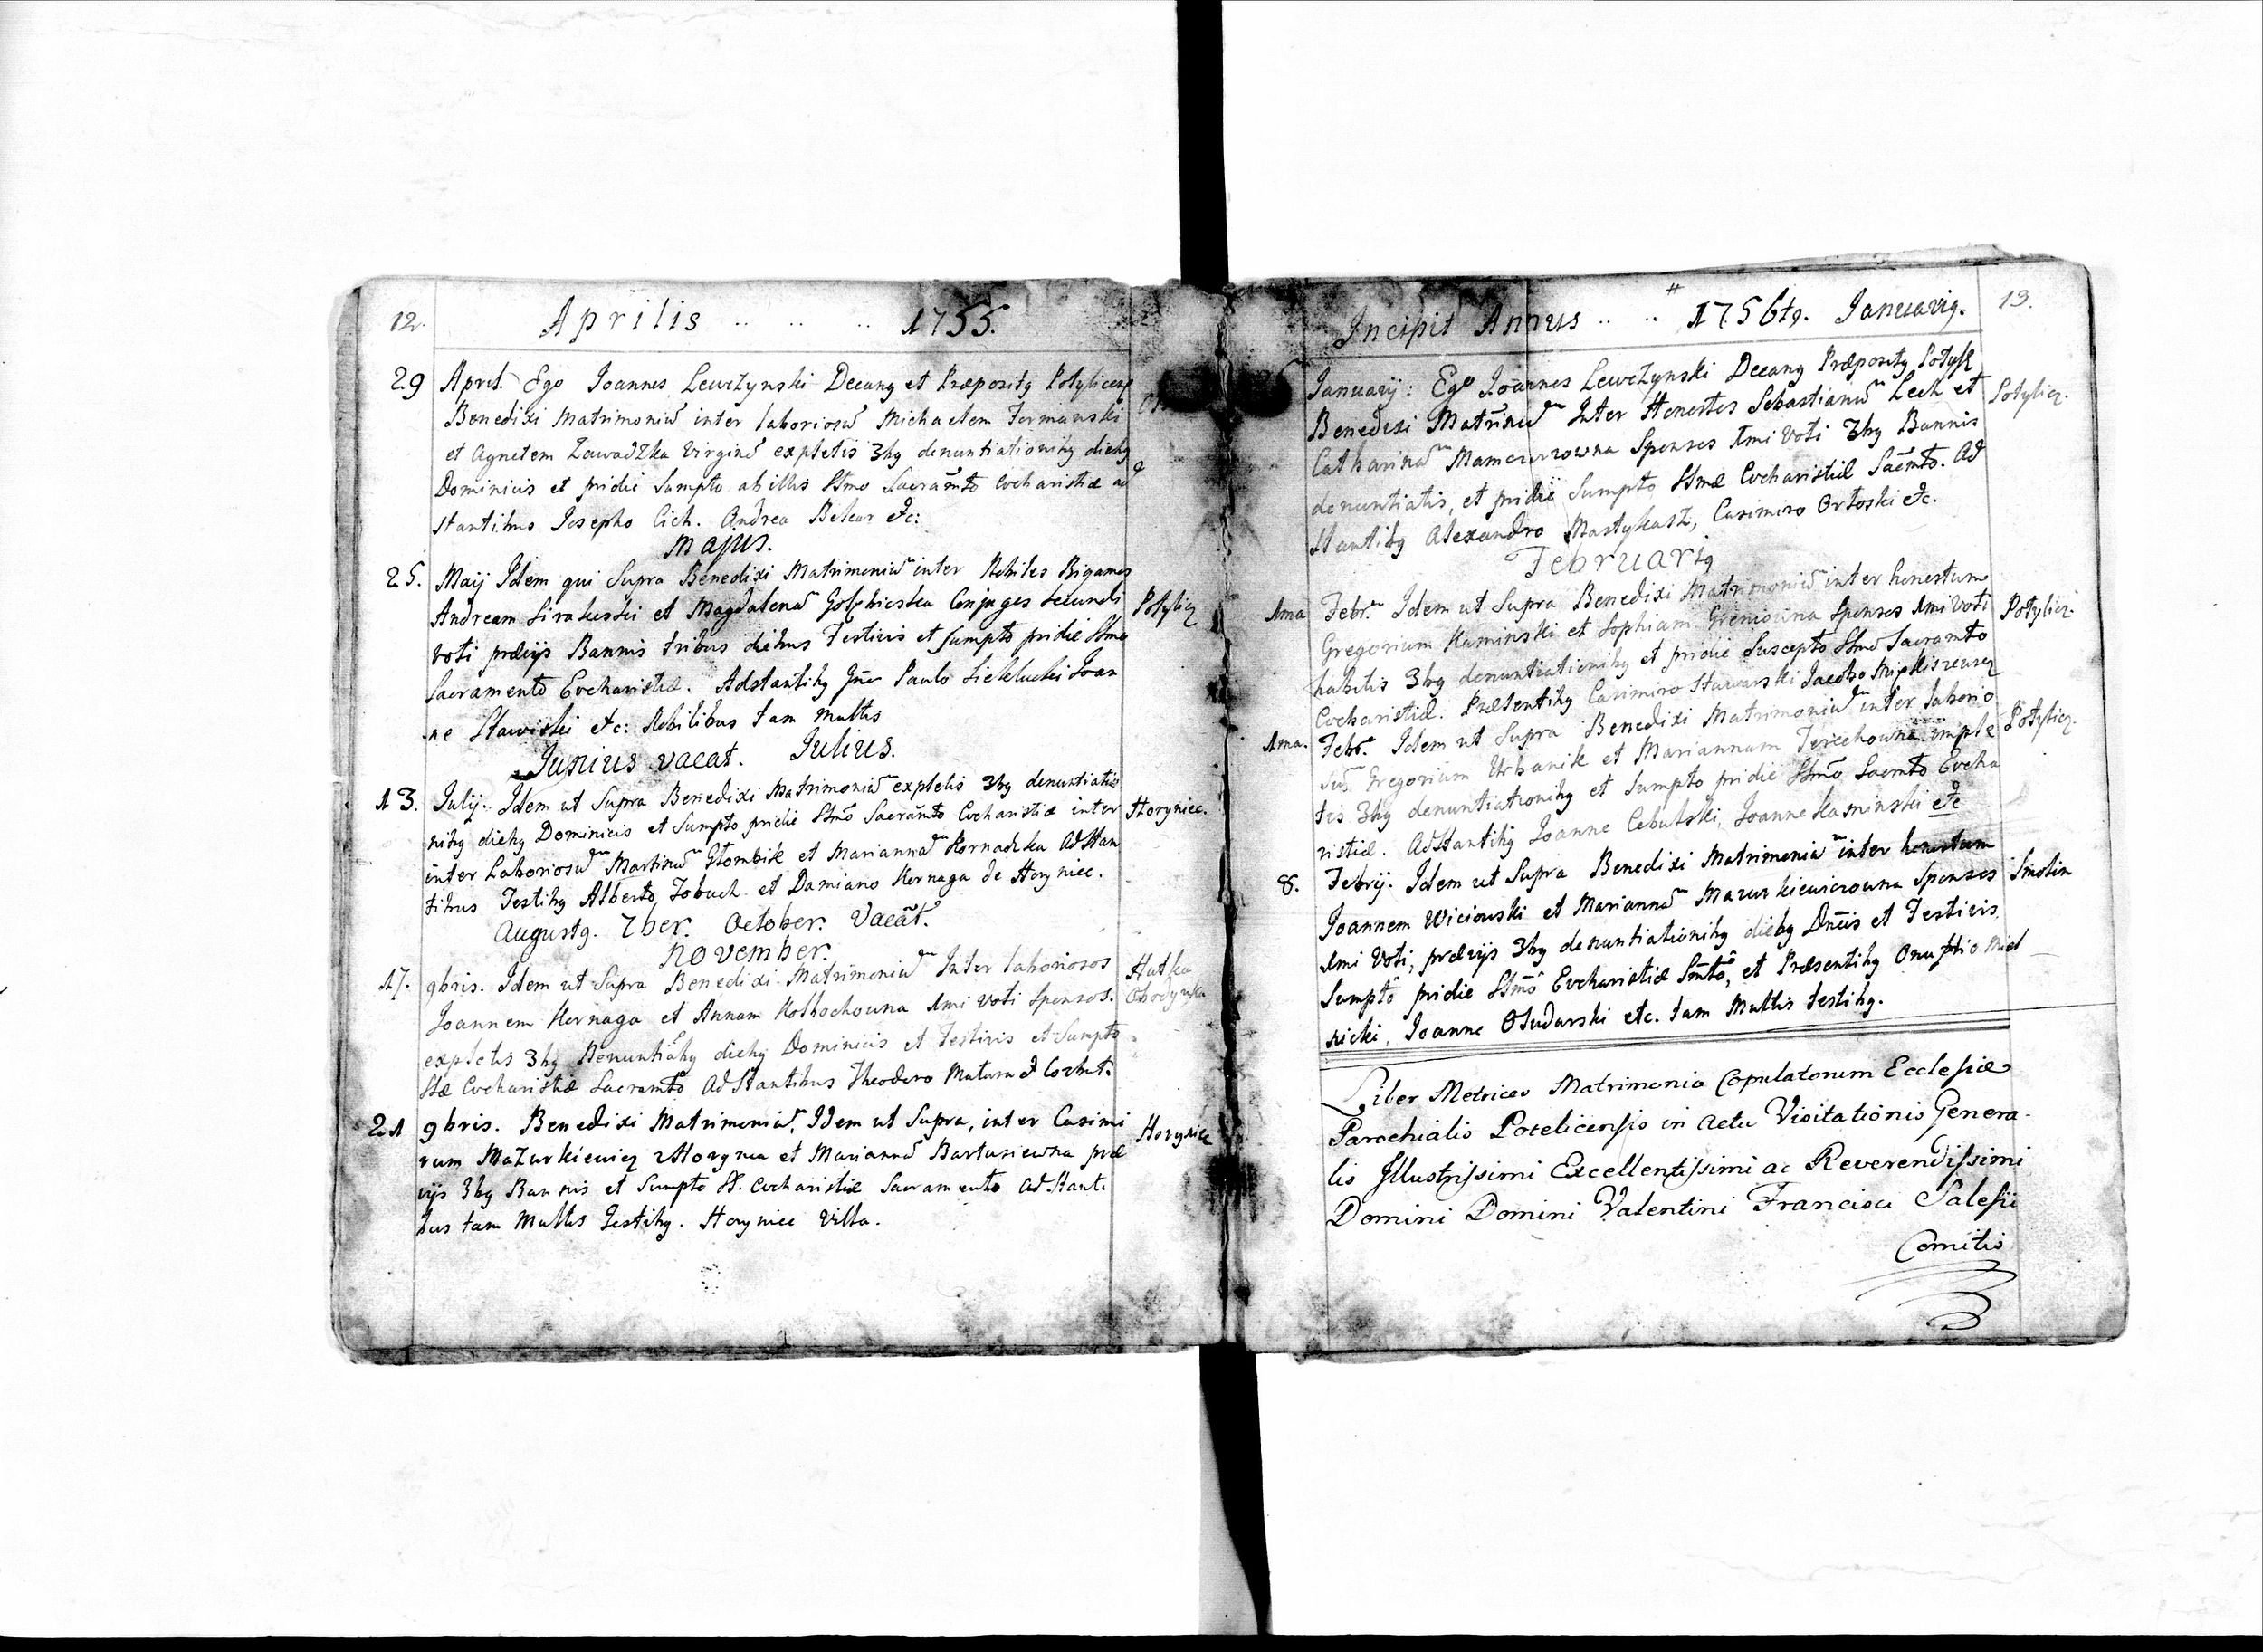 12.
Aprilis .. .. .. 1755.
29 April. Ego Joannes Lewczynski Decang et Præpositg Potylicens
Benedixi Matrimoniu inter laboriosu Michaelem Fermanski
et Agnetem Zawadzka Virginē expletis 3bg denuntiationibg diebg
Dominicis et pridie Sumpto ab illis SSmo Sacramto Eucharistiæ ad
stantibus Josepho Cich. Andrea Bekar etc:
Majus.
25. Maij Idem qui Supra Benedixi Matrimoniu inter Nobiles Bigamos
Andream Sirakuski et Magdalenā Conjuges Secundi
Voti præviis Bannis tribus diebus Festivis et Sumpto pridie SSmo
Sacramento Eucharistiæ. Adstantibg Paulo Joan
ne Stawiski etc: Nobilibus tam multis
Potylicz
Junius vacat. Julius.
13. Julij. Idem ut Supra Benedixi Matrimoniu expletis 3bg denuntiatio
nibg diebg Dominicis et Sumpto pridie SSmo Sacramto Eucharistiæ inter
inter Laboriosu Martinu Glombik et Mariannā Kornadzka Adstan
tibus Testibg Alberto Tobuch et Damiano Kornaga de Horyniec.
Horyniec.
Augustg. 7ber. October. Vacāt.
November.
17. 9bris. Idem ut Supra Benedixi Matrimoniu Inter laboriosos
Joannem Kornaga et Annam 1mi Voti Sponsos.
expletis 3bg Denuntiābg diebg Dominicis et Festivis et Sumpto
SSæ Eucharistiæ Sacramto AdStantibus Theodoro Matura et
Hutka
Obodynska
21 9bris. Benedixi Matrimoniu, Idem ut Supra, inter Casimi
rum Mazurkiewicz zHorynca et Mariannā Bartusiewna præ
vijs 3bg Bannis et Sumpto SS. Eucharistiæ Sacramento adstanti
bus tam Multis Testibg. Horyniec Villa.
Horyniec
13.
Incipit Annus .. .. 1756tg. Januarig.
Januarij: Ego Joannes Lewczynski Decang Præpositg Potylic
Benedixi Matrimu Inter Honestos Sebastianu Lech et
Catharinā Sponsos 1mi Voti 3bg Bannis
denuntiatis, et pridie Sumpto SSmæ Eucharistiæ Sacmto. Ad
stantibg Alexandro Mastykasz, Casimiro Ortoski etc.
Potylicz.
Februarig
1ma Febr. Idem ut Supra Benedixi Matrimoniu inter honestum
Gregorium Kaminski et Sophiam Sponsos 1mi Voti
habitis 3bg denuntiationibg et pridie Suscepto SSmo Sacramto
Eucharistiæ. Præsentibg Casimiro Stawarski
Potylicz.
1ma. Febr. Idem ut Supra Benedixi Matrimoniu inter laborio
su Gregorium Urbanik et Mariannam Terechowna exple
tis 3bg denuntiationibg et Sumpto pridie SSmo Sacmto Eucha
ristiæ. Adstantibg Joanne Cebulski, Joanne Kaminski etc
Potylicz.
8. Febrij. Idem ut Supra Benedixi Matrimoniu inter honestum
Joannem Wiciowski et Mariannā Mazurkiewiczowna Sponsos
1mi Voti, prævijs 3bg denuntiationibg diebg Dnicis et Festivis
Sumpto pridie SSmo Eucharistiæ Smto, et Præsentibg Onuphrio Miel
nicki, Joanne Oludarski etc. tam Multis testibg.
Smolin
Liber Metrices Matrimonio Copulatorum Ecclesiæ
Parochialis Potelicensis in Actu Visitationis Genera-
lis Illustrissimi Excellentissimi ac Reverendissimi
Domini Domini Valentini Francisci Salesii
Comitis